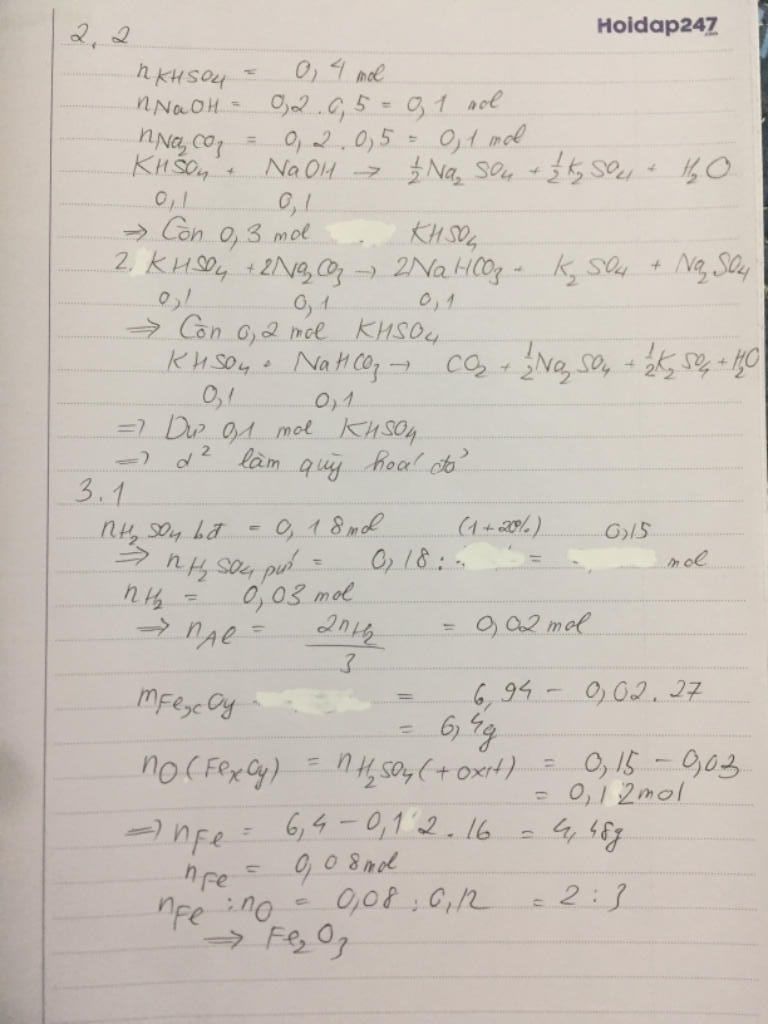 Hoidap247.com
2, 2
nKHSO4 = 0,4 mol
nNaOH = 0,2.0,5 = 0,1 mol
nNa2CO3 = 0,2.0,5 = 0,1 mol
KHSO4 + NaOH → 1/2 Na2SO4 + 1/2 K2SO4 + H2O
0,1 0,1
⇒ Còn 0,3 mol KHSO4
2. KHSO4 + 2Na2CO3 → 2NaHCO3 + K2SO4 + Na2SO4
0,1 0,1 0,1
⇒ Còn 0,2 mol KHSO4
KHSO4 + NaHCO3 → CO2 + 1/2 Na2SO4 + 1/2 K2SO4 + H2O
0,1 0,1
⇒ Dư 0,1 mol KHSO4
⇒ d² làm quỳ hoá đỏ
3.1
nH2SO4 bđ = 0,18 mol (1+20%) 0,15
⇒ nH2SO4 pứ = 0,18 : = mol
nH2 = 0,03 mol
⇒ nAl = 2nH2/3 = 0,02 mol
mFexOy = 6,94 - 0,02.27
= 6,4g
nO(FexOy) = nH2SO4(+oxit) = 0,15 - 0,03
= 0,12mol
⇒ nFe = 6,4 - 0,12.16 = 4,48g
nFe = 0,08mol
nFe : nO = 0,08 : 0,12 = 2 : 3
⇒ Fe2O3